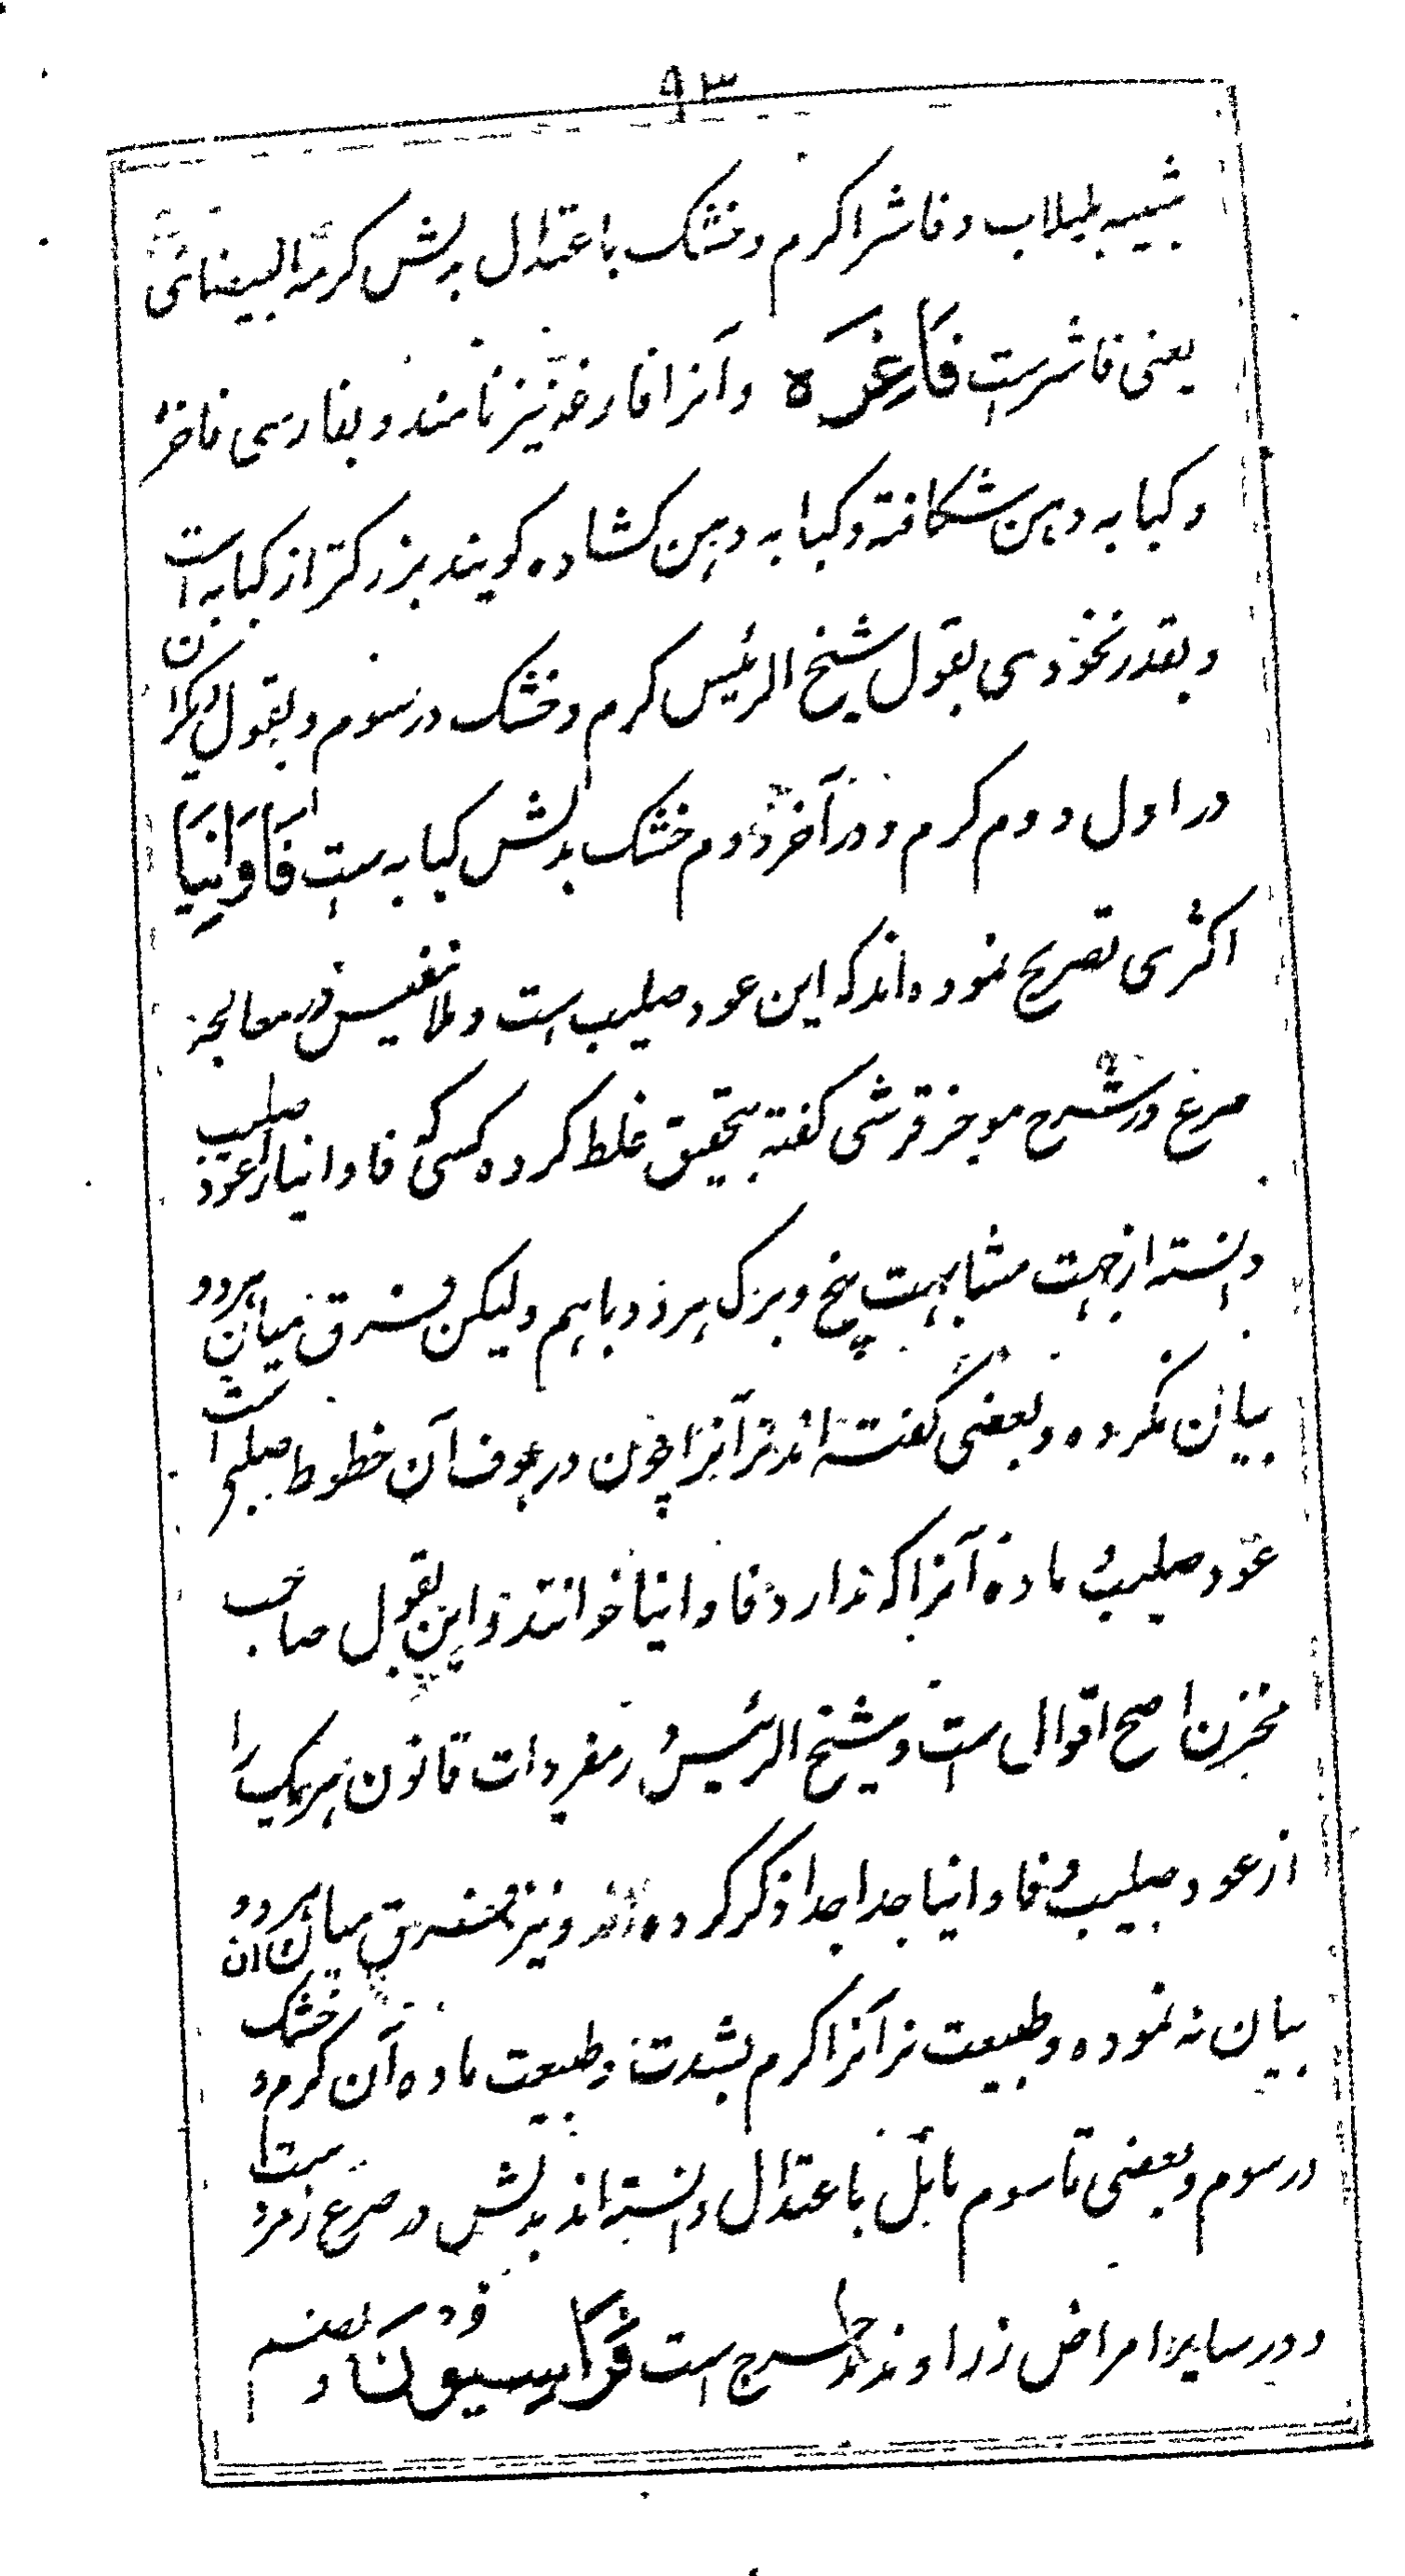 ۹۳
شبیه بلبلاب و فاشرا کرم و خشک باعتدال بدلش کرمة البیضائی
یعنی فاشرست فاغره و آنرا فارغه نیز نامند و بفارسی فاخره
و کبابه دهن شکافته و کبابه دهن کشاده کویند بزرکتر از کبابه است
و بقدر نخودی بقول شیخ الرئیس کرم و خشک در سوم و بقول دیکران
در اول دوم کرم و در آخر دوم خشک بدلش کبابه ست فاوانیا
اکثری تصریح نموده اند که این عود صلیب است و ملا نفیس در معالجه
صرع در شرح موجز قرشی کفته بتحقیق غلط کرده کسی که فاوانیا را عود صلیب
دانسته از جهت مشابهت بیخ و برک هر دو باهم ولیکن فرق میان هر دو
بیان نکرده و بعضی کفته اند نر آنرا چون در جوف آن خطوط صلیبی است
عود صلیب و ماده آنرا که ندارد فاوانیا خوانند و این بقول صاحب
مخزن اصح اقوال ست و شیخ الرئیس در مفردات قانون هر یک را
از عود صلیب و فاوانیا جدا جدا ذکر کرده اند و نیز فرق میان هر دو آن
بیان نه نموده و طبیعت نر آنرا کرم بشدت و طبیعت ماده آن کرم و خشک
در سوم و بعضی تا سوم مایل باعتدال دانسته اند بدلش در صرع زمرد ست
و در سایر امراض زراوند مدحرج است فراسیون بفتح فا و